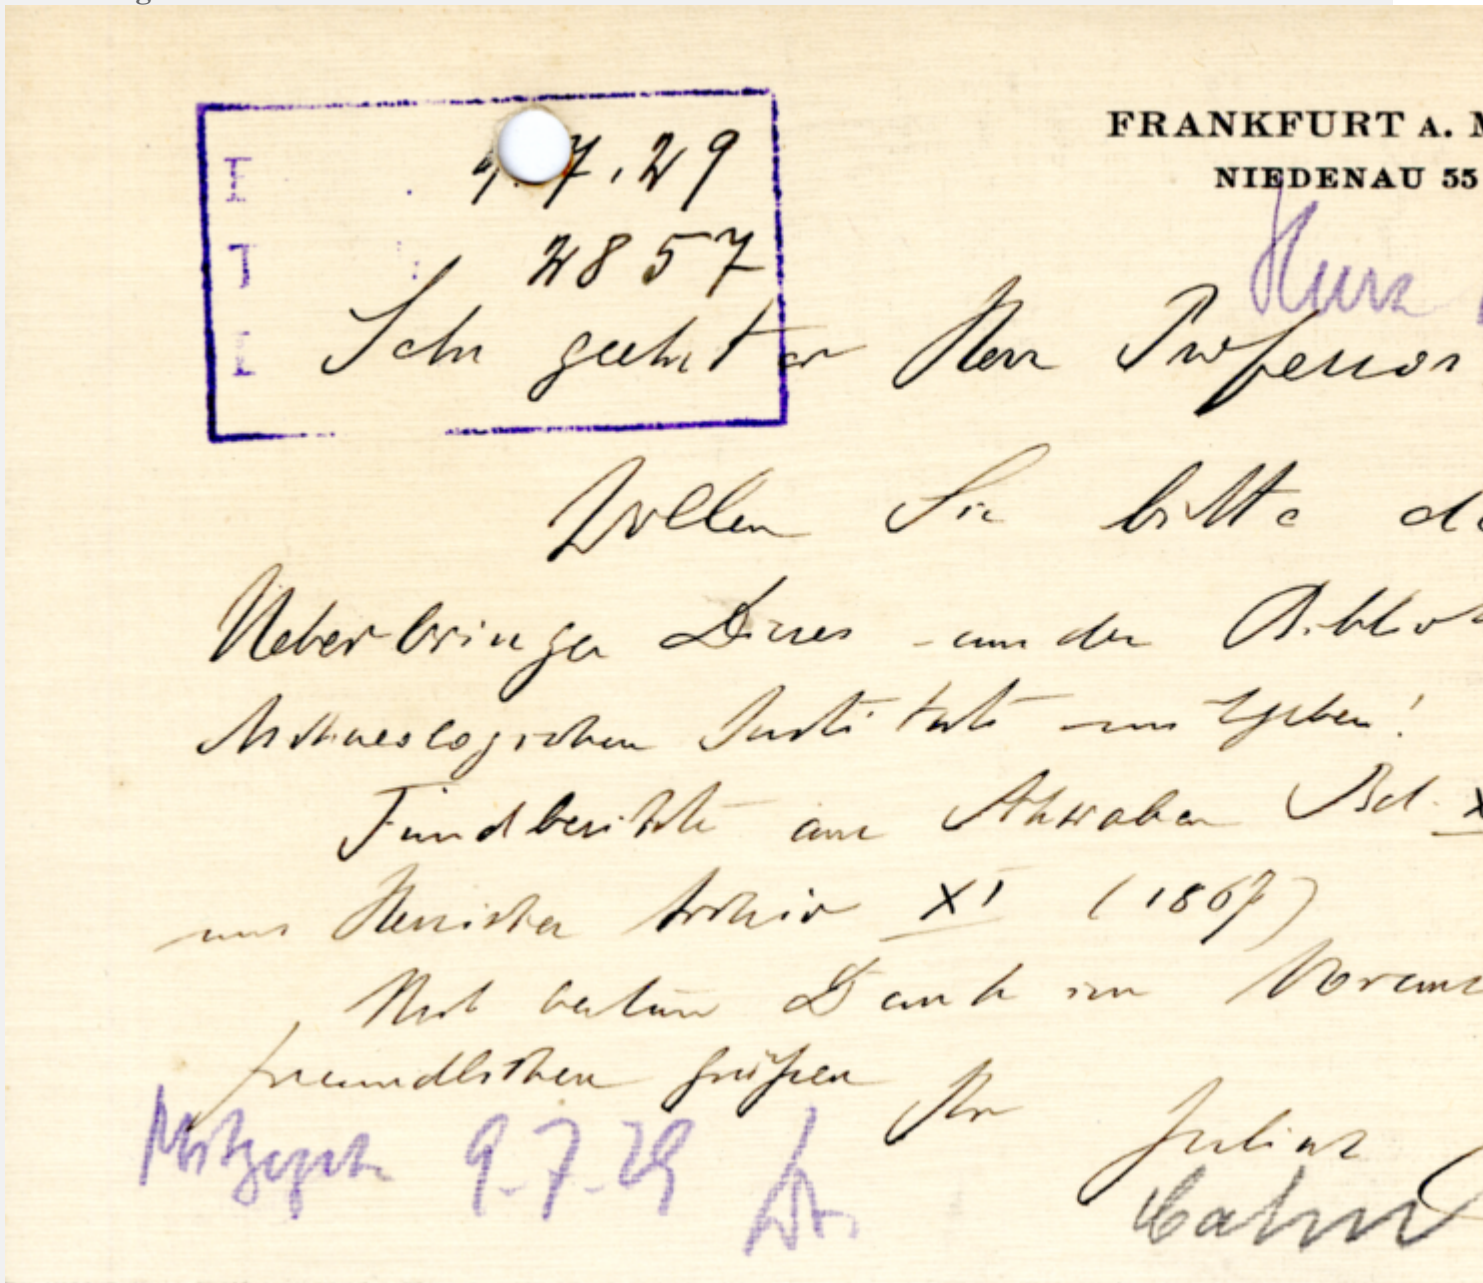 FRANKFURT A. M
NIEDENAU 55
E
9.7.29
J
2857
Sehr geehrter Herr Professor
Wollen Sie bitte de
Ueberbringer Dieses aus der Biblio
Archaeologischen Instituts mitgeben!
Fundberichte aus Schwaben Bd. X
und Hessisches Archiv XI (1867)
Mit bestem Dank im Voraus
freundlichen Grüßen
Ihr Julius
Cahn
Mitgegeb. 9.7.29